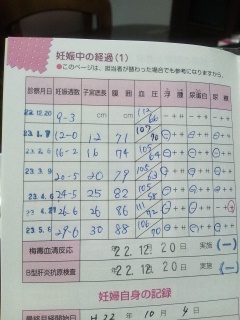 妊娠中の経過(1)
●このページは、担当者が替わった場合でも参考になりますから、
診察月日 妊娠週数 子宮底長 腹囲 血圧 浮腫 尿蛋白 尿糖
22.12.20 9-3 cm cm 112/66 - + ++ - + ++ - + ++
23.1.7 12-0 12 71 107/70 - + ++ - + ++ - + ++
16-2 16 74 105/64 - + ++ - + ++ - + ++
23.3.9 20-5 20 79 - + ++ - + ++ - + ++
23.4.6 24-5 25 82 105/58 - + ++ - + ++ - + ++
26-6 26 86 - + ++ - + ++ - + ++
23.5.6 29-0 30 88 - + ++ - + ++ - + ++
梅毒血清反応 22年12月20日 実施 (-)
B型肝炎抗原検査 22年12月20日 実施 (-)
妊婦自身の記録
最終月経開始日 H22年10月4日